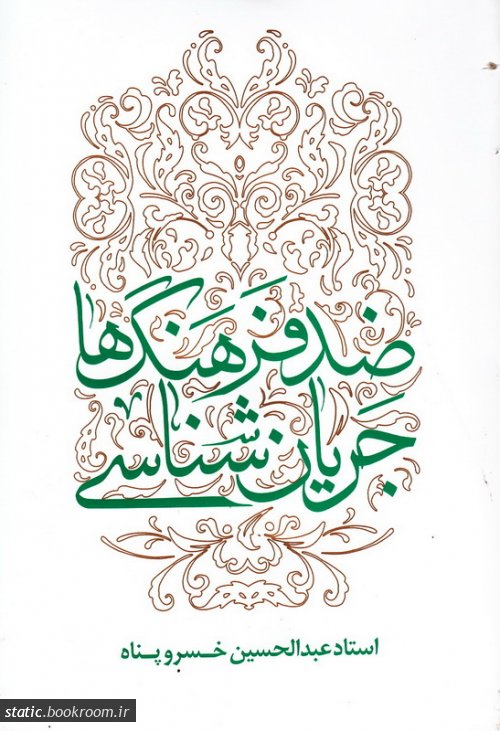 ضد فرهنگ‌ها
جریان شناسی
استاد عبدالحسین خسروپناه
static.bookroom.ir